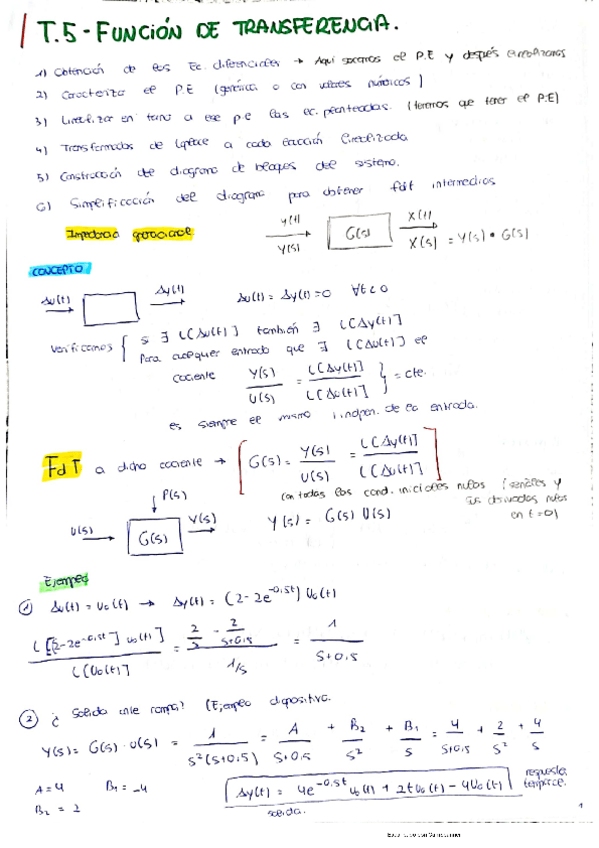 T.5 - FUNCIÓN DE TRANSFERENCIA.
1) Obtención de las Ec. diferenciales → Aquí sacamos el P.E y después linealizamos
2) Caracterizar el P.E (genérico o con valores numéricos)
3) Linealizar en torno a ese p.e las ec. planteadas. (tenemos que tener el P.E)
4) Transformadas de Laplace a cada ecuación linealizada
5) Construcción del diagrama de bloques del sistema.
6) Simplificación del diagrama para obtener fdt intermedios
Y(t) X(t)
G(s)
Y(s) X(s) = Y(s) • G(s)
CONCEPTO
Δu(t) Δy(t) Δu(t) = Δy(t) = 0 ∀t < 0
Verificamos { si ∃ L[Δu(t)] también ∃ L[Δy(t)]
Para cualquier entrada que ∃ L[Δu(t)] el
cociente Y(s)/U(s) = L[Δy(t)]/L[Δu(t)] } = cte.
es siempre el mismo, indpen. de la entrada.
FdT a dicho cociente → [G(s) = Y(s)/U(s) = L[Δy(t)]/L[Δu(t)]]
con todas las cond. iniciales nulas (señales y
sus derivadas nulas
en t=0)
P(s)
U(s) G(s) Y(s) Y(s) = G(s) U(s)
Ejemplo
① Δu(t) = u₀(t) → Δy(t) = (2-2e^-0,5t) u₀(t)
L[[2-2e^-0,5t] u₀(t)]/L[u₀(t)] = (2/s - 2/(s+0,5))/(1/s) = 1/(s+0,5)
② ¿Salida ante rampa? (Ejemplo diapositiva.
Y(s) = G(s) · U(s) = 1/(s²(s+0,5)) = A/(s+0,5) + B₂/s² + B₁/s = 4/(s+0,5) + 2/s² + 4/s
A = 4 B₁ = -4
B₂ = 2
Δy(t) = 4e^-0,5t u₀(t) + 2t u₀(t) - 4u₀(t)
respuesta
temporal.
salida.
1